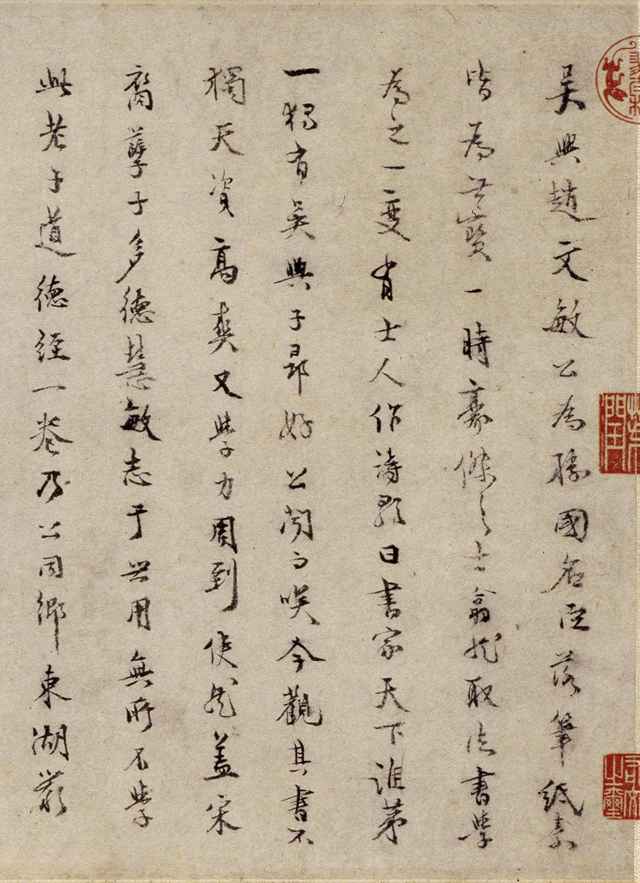 吳興趙文敏公為勝國名臣落筆紙素
皆為世寶一時豪傑之士翕然取法書學
為之一變有士人作詩曰書家天下誰第
一獨有吳興子昂好公聞而咲今觀其書不
獨天資高爽又學力周到使然蓋宋
裔孽子多德慧敏志于世用無所不學
此老子道德經一卷乃公同鄉東湖嚴